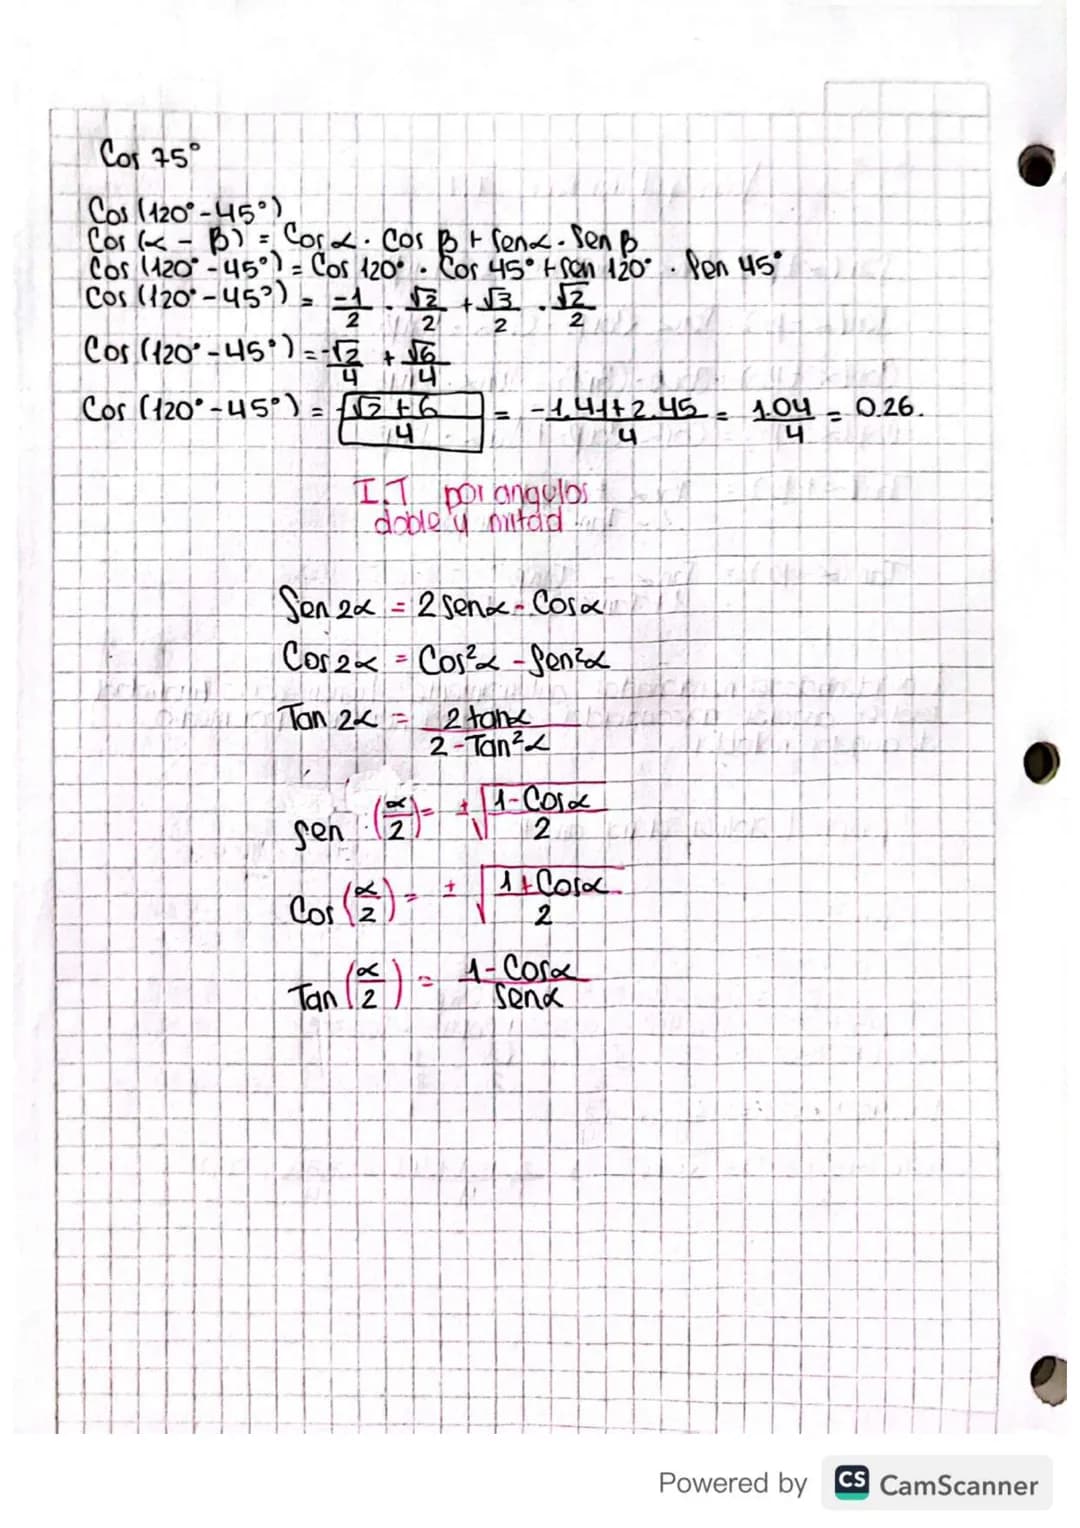 Cos 75°
Cos (120° - 45°)
Cos (α - β) = Cos α · Cos β + Sen α · Sen β
Cos (120° - 45°) = Cos 120° · Cos 45° + Sen 120° · Sen 45°
Cos (120° - 45°) = -1/2 · √2/2 + √3/2 · √2/2
Cos (120° - 45°) = -√2/4 + √6/4
Cos (120° - 45°) = -√2 + 6/4 = -1.41 + 2.45/4 = 1.04/4 = 0.26.
I.T por angulos
doble y mitad
Sen 2α = 2 Sen α - Cos α
Cos 2α = Cos²α - Sen²α
Tan 2α = 2 tan α / 2 - Tan²α
Sen (α/2) = ±√(1 - Cos α / 2)
Cos (α/2) = ±√(1 + Cos α / 2)
Tan (α/2) = 1 - Cos α / Sen α
Powered by CS CamScanner